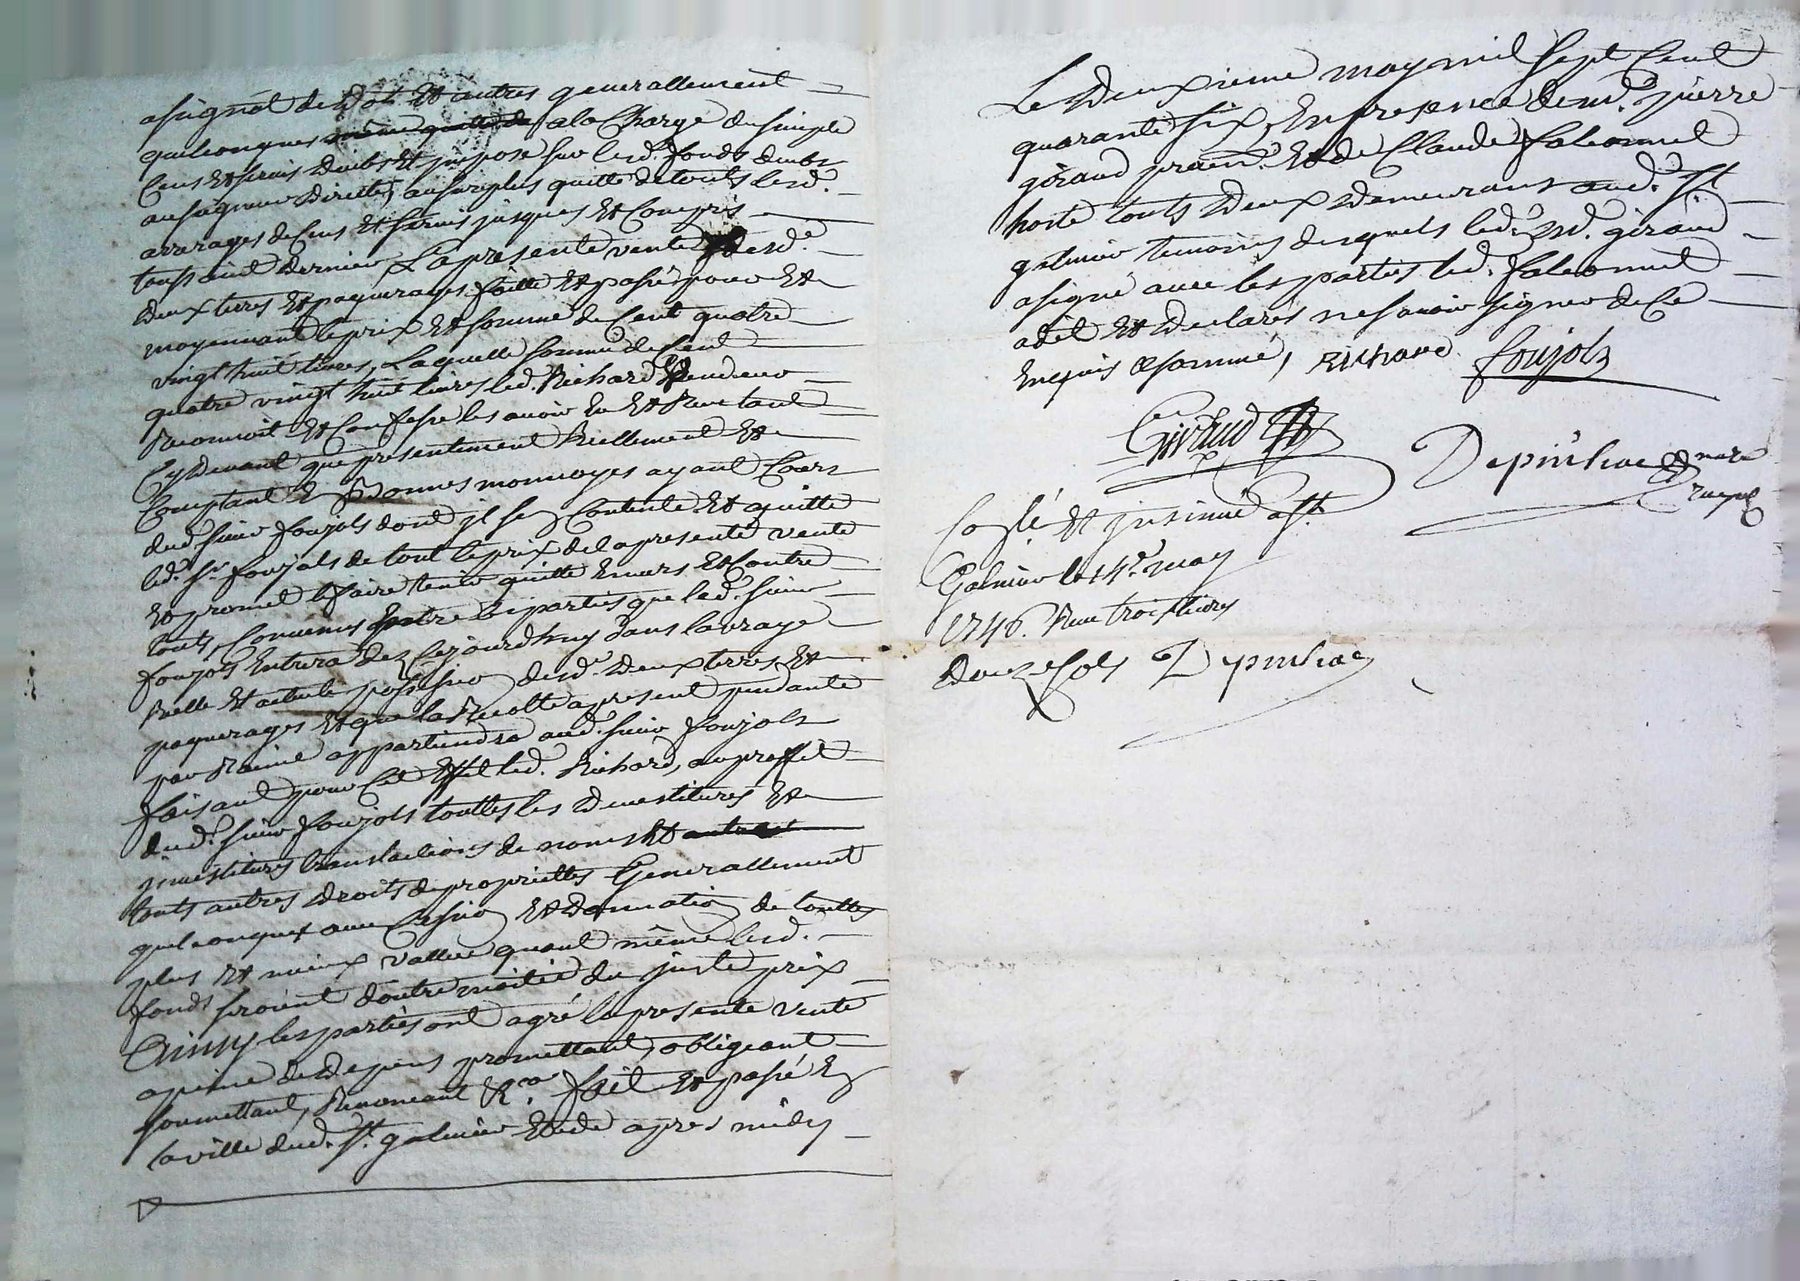 asignal de dot et autres generallement
quelconques a la Charge du simple
Cens et servis deubs et imposé sur lesd. fonds deubs
au seigneur direct, au surplus quitte de touts lesd.
arrerages de cens et servis jusques et Compris
toussaint dernier, La presente vente desd.
deux terres et paquerages faitte et passé pour et
moyennant le prix et somme de Cent quatre
vingt huit livres, Laquelle somme de Cent
quatre vingt huit livres led. Richard vendeur
reconnoit et Confesse les avoir eu et Reçu tant
Cy devant que presentement Reellement et
Comptant en Bonnes monnoyes ayant Cours
dud. sieur foujols dont jl se Contente et quitte
led. Sr. foujols de tout le prix de la presente vente
et promet le faire tenir quitte envers et Contre
touts, Convenus entre les parties que led. sieur
foujols entrera dez Cejourdhuy dans la vraye
Reelle et actuelle possession desd. deux terres et
paquerages et que la Recolte a present pendante
par Racine appartiendra aud. sieur foujols
faisant pour Cet effet led. Richard, au proffit
dud. sieur foujols touttes les devestitures et
jnvestitures translations de noms et
touts autres droits de proprietés Generallement
quelconques avec Cession et donnation de touttes
plus et mieux vallue quant même lesd.
fonds seroient d'outre moitié du juste prix
Ainsy les parties ont agré la presente vente
a peine de depens promettant, obligeant
soumettant, Renonceant &a. fait et passé en
la ville dud. St. galmier Etude apres midy
Le deuxieme may mil sept Cent
quarante six, En presence de md. pierre
giraud et de Claude faleonnet
hoste touts deux demeurans aud. St.
galmier temoins desquels led. Md. giraud
a signé avec les parties led. faleonnet
a dit et declarés ne savoir signer de Ce
enquis et sommé, Richard foujols
Giraud
Depinhac
Collé et jnsinué a St.
Galmier le 14e. may
1746. Reçu trois livres
douze sols Depinhac